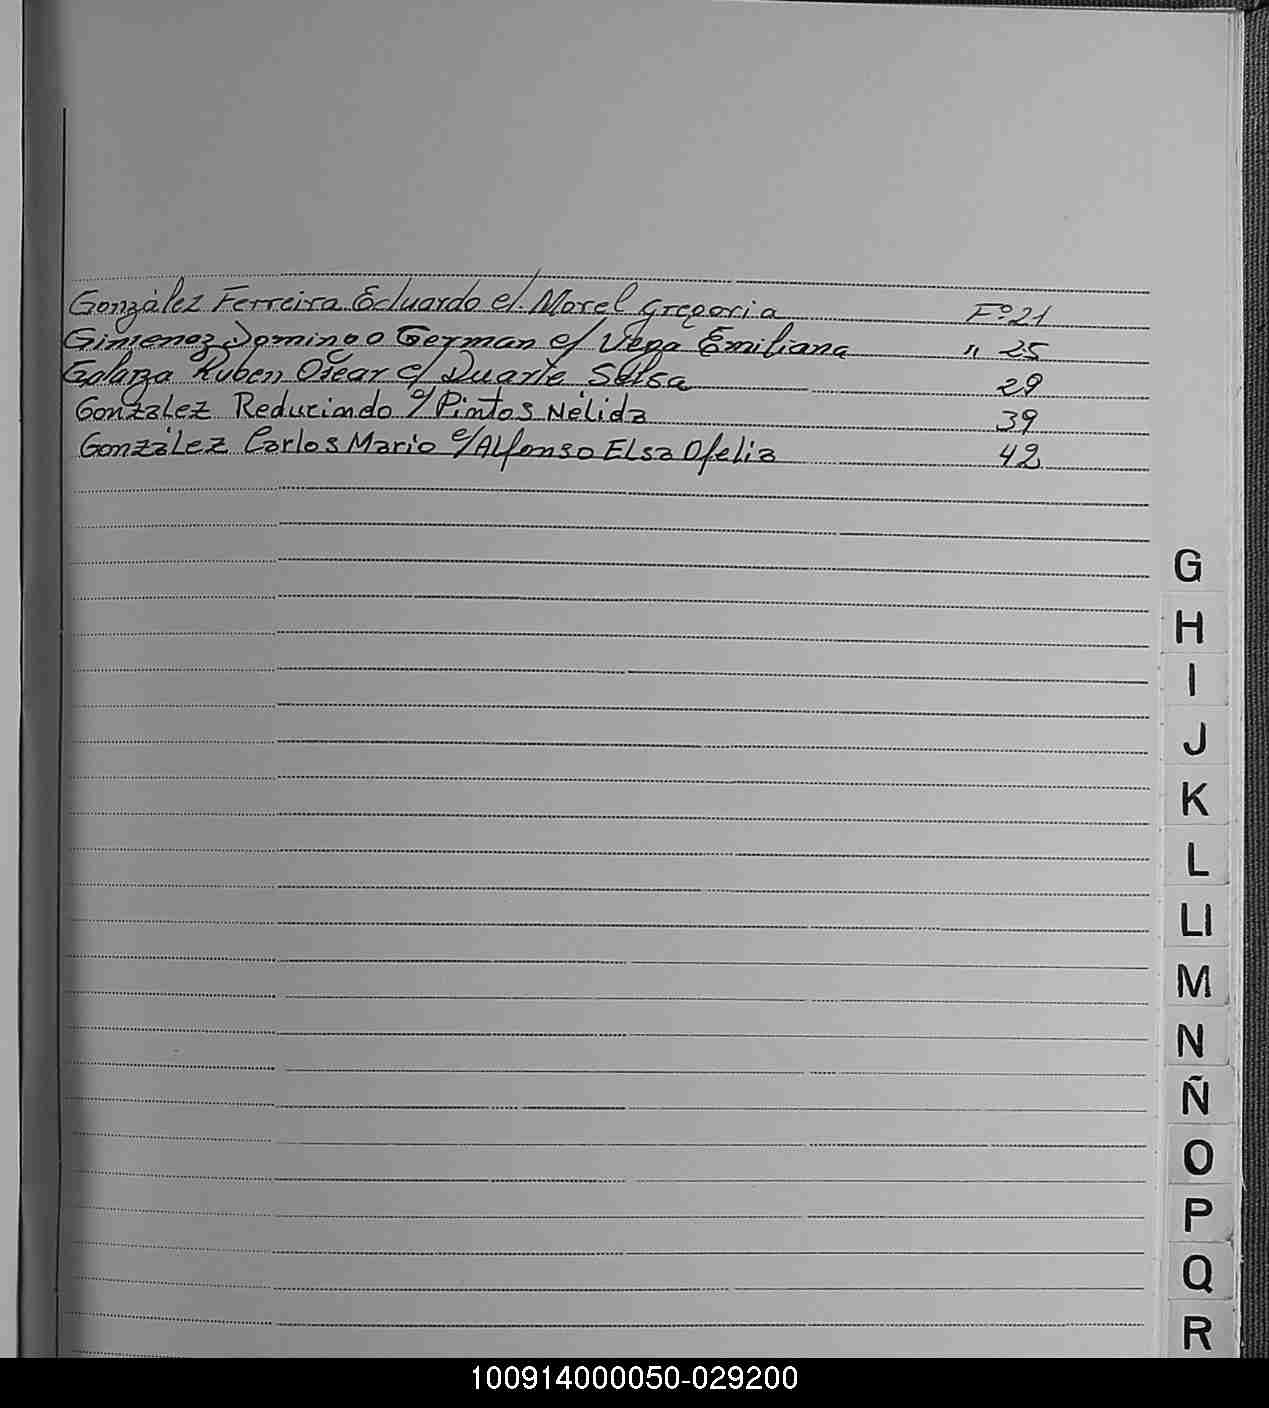 González Ferreira Eduardo c/ Morel Gregoria Fº 21
Gimenez Domingo German c/ Vega Emiliana " 25
Galarza Ruben Oscar c/ Duarte Selsa 29
González Reducindo c/ Pintos Nélida 39
González Carlos Mario c/ Alfonso Elsa Ofelia 42
G
H
I
J
K
L
Ll
M
N
Ñ
O
P
Q
R
100914000050-029200